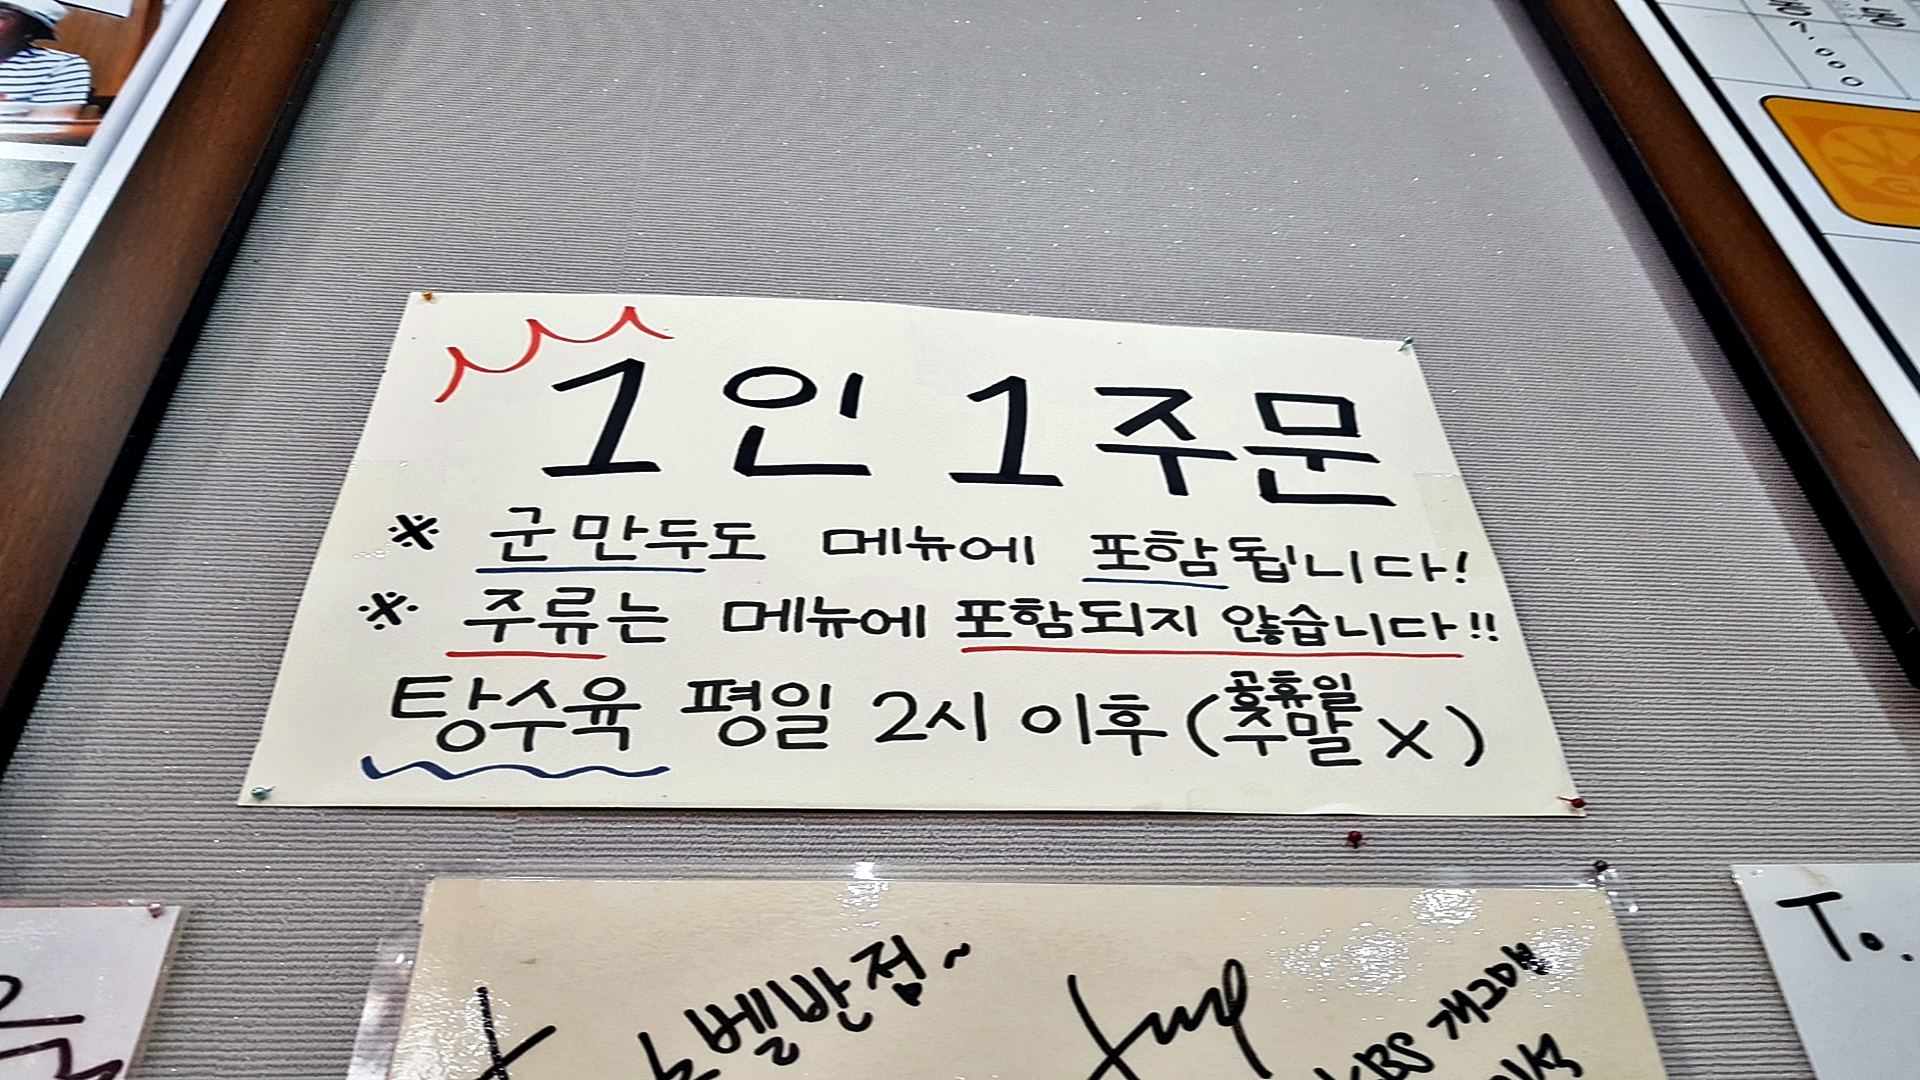 1인 1주문
※ 군만두도 메뉴에 포함됩니다!
※ 주류는 메뉴에 포함되지 않습니다!!
탕수육 평일 2시 이후 (공휴일 주말 X)
노벨반점~
KBS 개그맨
T.